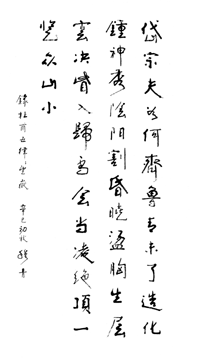 岱宗夫如何齊魯青未了造化
鍾神秀陰陽割昏曉盪胸生層
雲決眥入歸鳥會當凌絕頂一
覽众山小
錄杜甫五律望岳 辛巳初秋 穆青